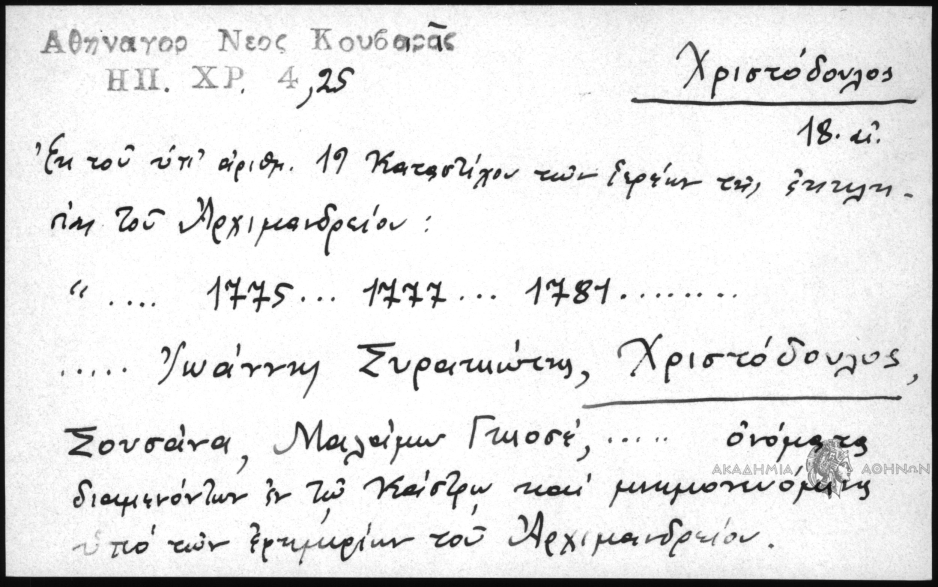 Αθηναγορ Νεος Κουβαρᾶς
ΗΠ. ΧΡ. 4,25
Χριστόδουλος
18. αἰ.
Ἐκ τοῦ ὑπ' ἀριθμ. 19 Καταστίχου τῶν ἱερέων τῆς ἐκκλη-
σίας τοῦ Ἀρχιμανδρείου:
“ .... 1775... 1777... 1781........
..... Ἰωάννης Συρακιώτης, Χριστόδουλος,
Σουσάνα, Μαλάμω Γκιοσέ, ..... ὀνόματα
διαμενόντων ἐν τῷ Κάστρῳ καὶ μνημονευόμενα
ὑπό τῶν ἐφημερίων τοῦ Ἀρχιμανδρείου.
ΑΚΑΔΗΜΙΑ ΑΘΗΝΩΝ